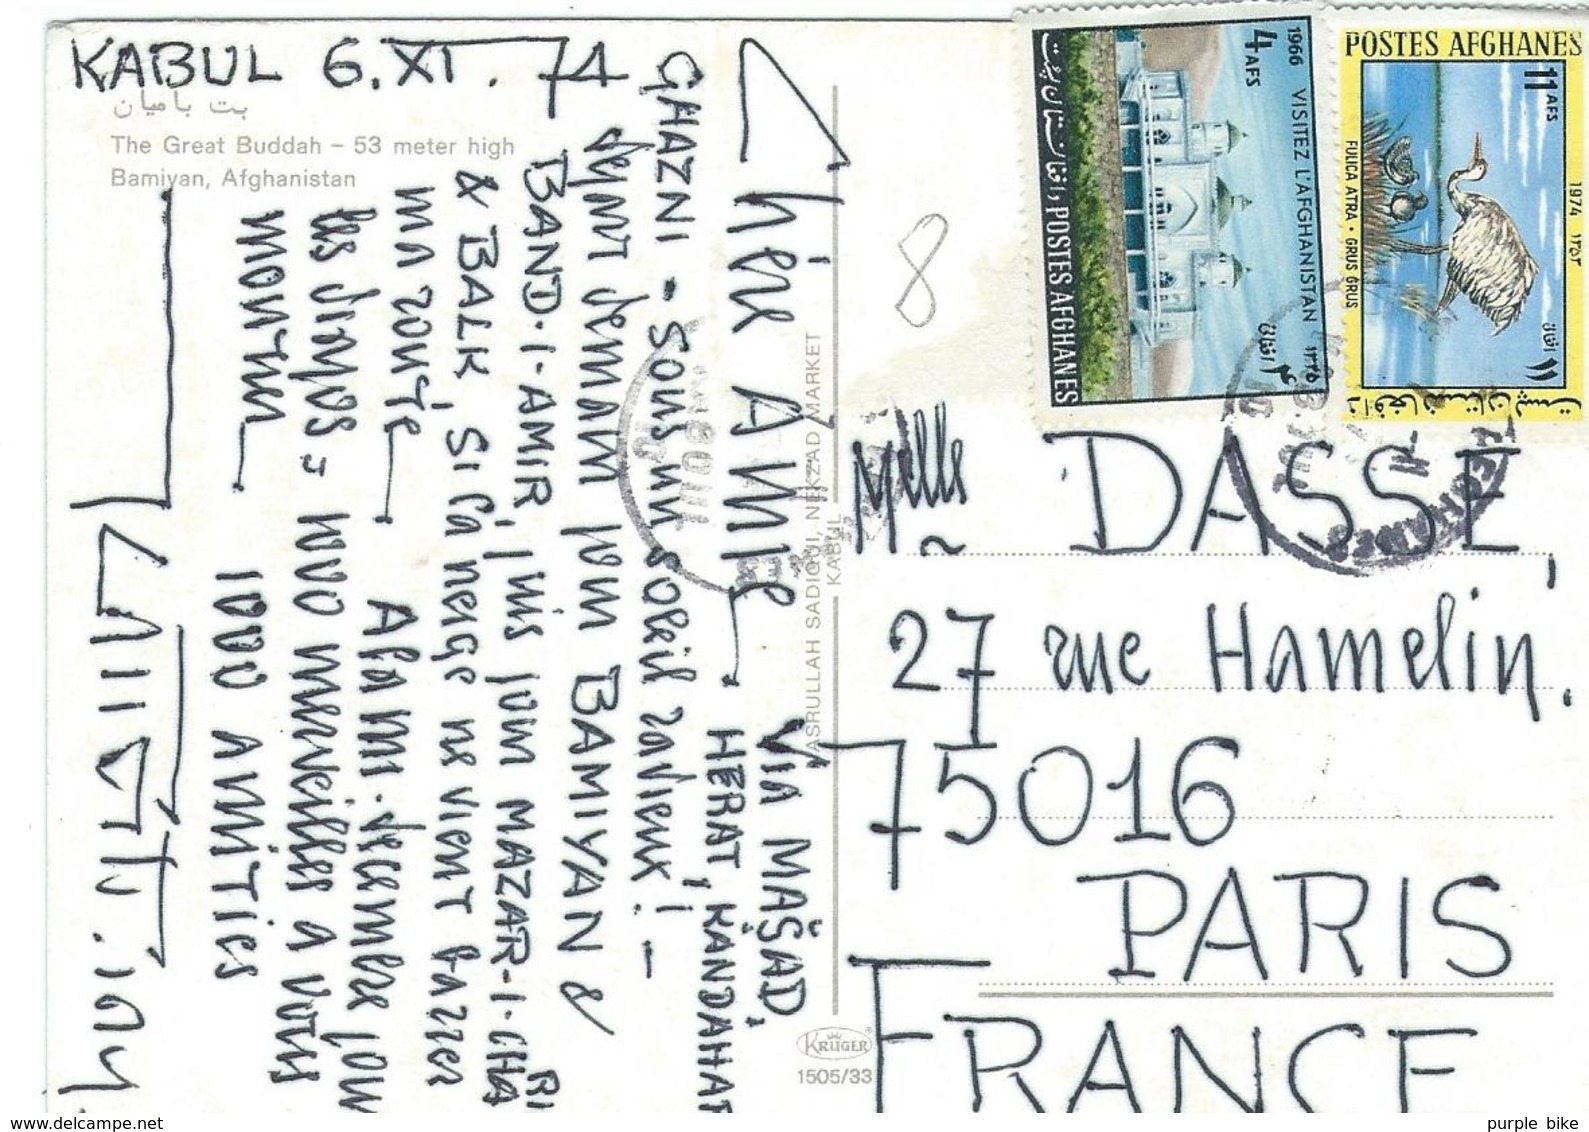 KABUL 6.XI.74
بت بامیان
The Great Buddah – 53 meter high
Bamiyan, Afghanistan
Chère Amie,
VIA MAŠAD,
HERAT, KANDAHAR
GHAZNI - sous un soleil radieux! –
départ demain pour BAMIYAN &
BAND-I-AMIR, puis pour MAZAR-I-CHARI
& BALK, si la neige ne vient barrer
ma route.
À la mi-décembre pour
les
1000 merveilles à votre
1000 AMITIES
NASRULLAH SADIQUI, NEKZAD MARKET
KABUL
KRÜGER®
1505/33
8
1966 VISITEZ L'AFGHANISTAN ١٣٤٥
4 AFS
POSTES AFGHANES
POSTES AFGHANES
11 AFS
1974 ١٣٥٣
FULICA ATRA · GRUS GRUS
Melle DASSE
27 rue Hamelin,
75016
PARIS
FRANCE
www.delcampe.net
purple bike